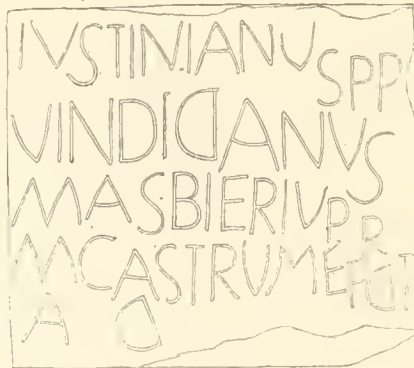 IVSTINIANVSPP
VINDICIANVS
MASBIERIVPR
MCASTRUM
A